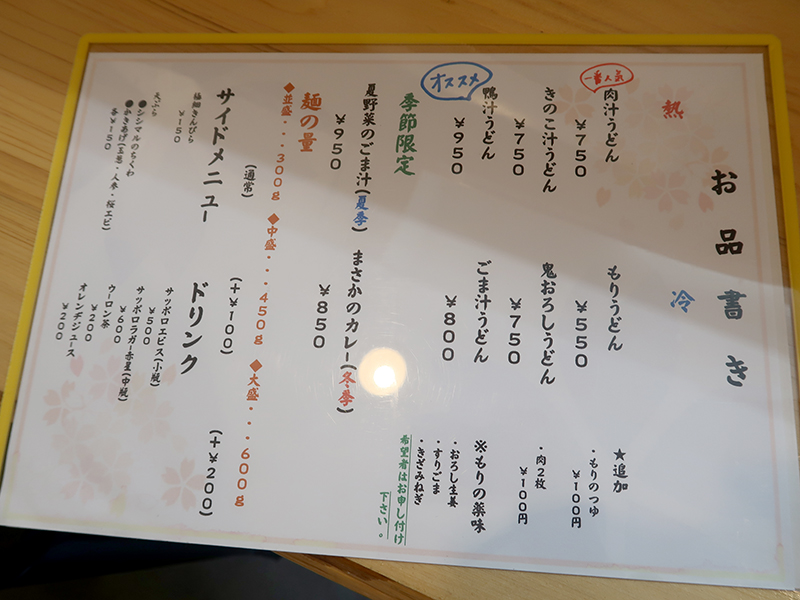 お品書き
熱
一番人気
肉汁うどん
￥750
きのこ汁うどん
￥750
オススメ
鴨汁うどん
￥950
冷
もりうどん
￥550
鬼おろしうどん
￥750
ごま汁うどん
￥800
★追加
・もりのつゆ
￥100円
・肉2枚
￥100円
※もりの薬味
・おろし生姜
・すりごま
・きざみねぎ
希望者はお申し付け
下さい。
季節限定
夏野菜のごま汁(夏季)
￥950
まさかのカレー(冬季)
￥850
麺の量
◆並盛・・・300g ◆中盛・・・450g ◆大盛・・・600g
(通常) (＋￥100) (＋￥200)
サイドメニュー
極細きんぴら
￥150
天ぷら
●シシマルのちくわ
●かきあげ(玉葱・人参・桜エビ)
各￥150
ドリンク
サッポロエビス(小瓶)
￥500
サッポロラガー赤星(中瓶)
￥600
ウーロン茶
￥200
オレンヂジュース
￥200